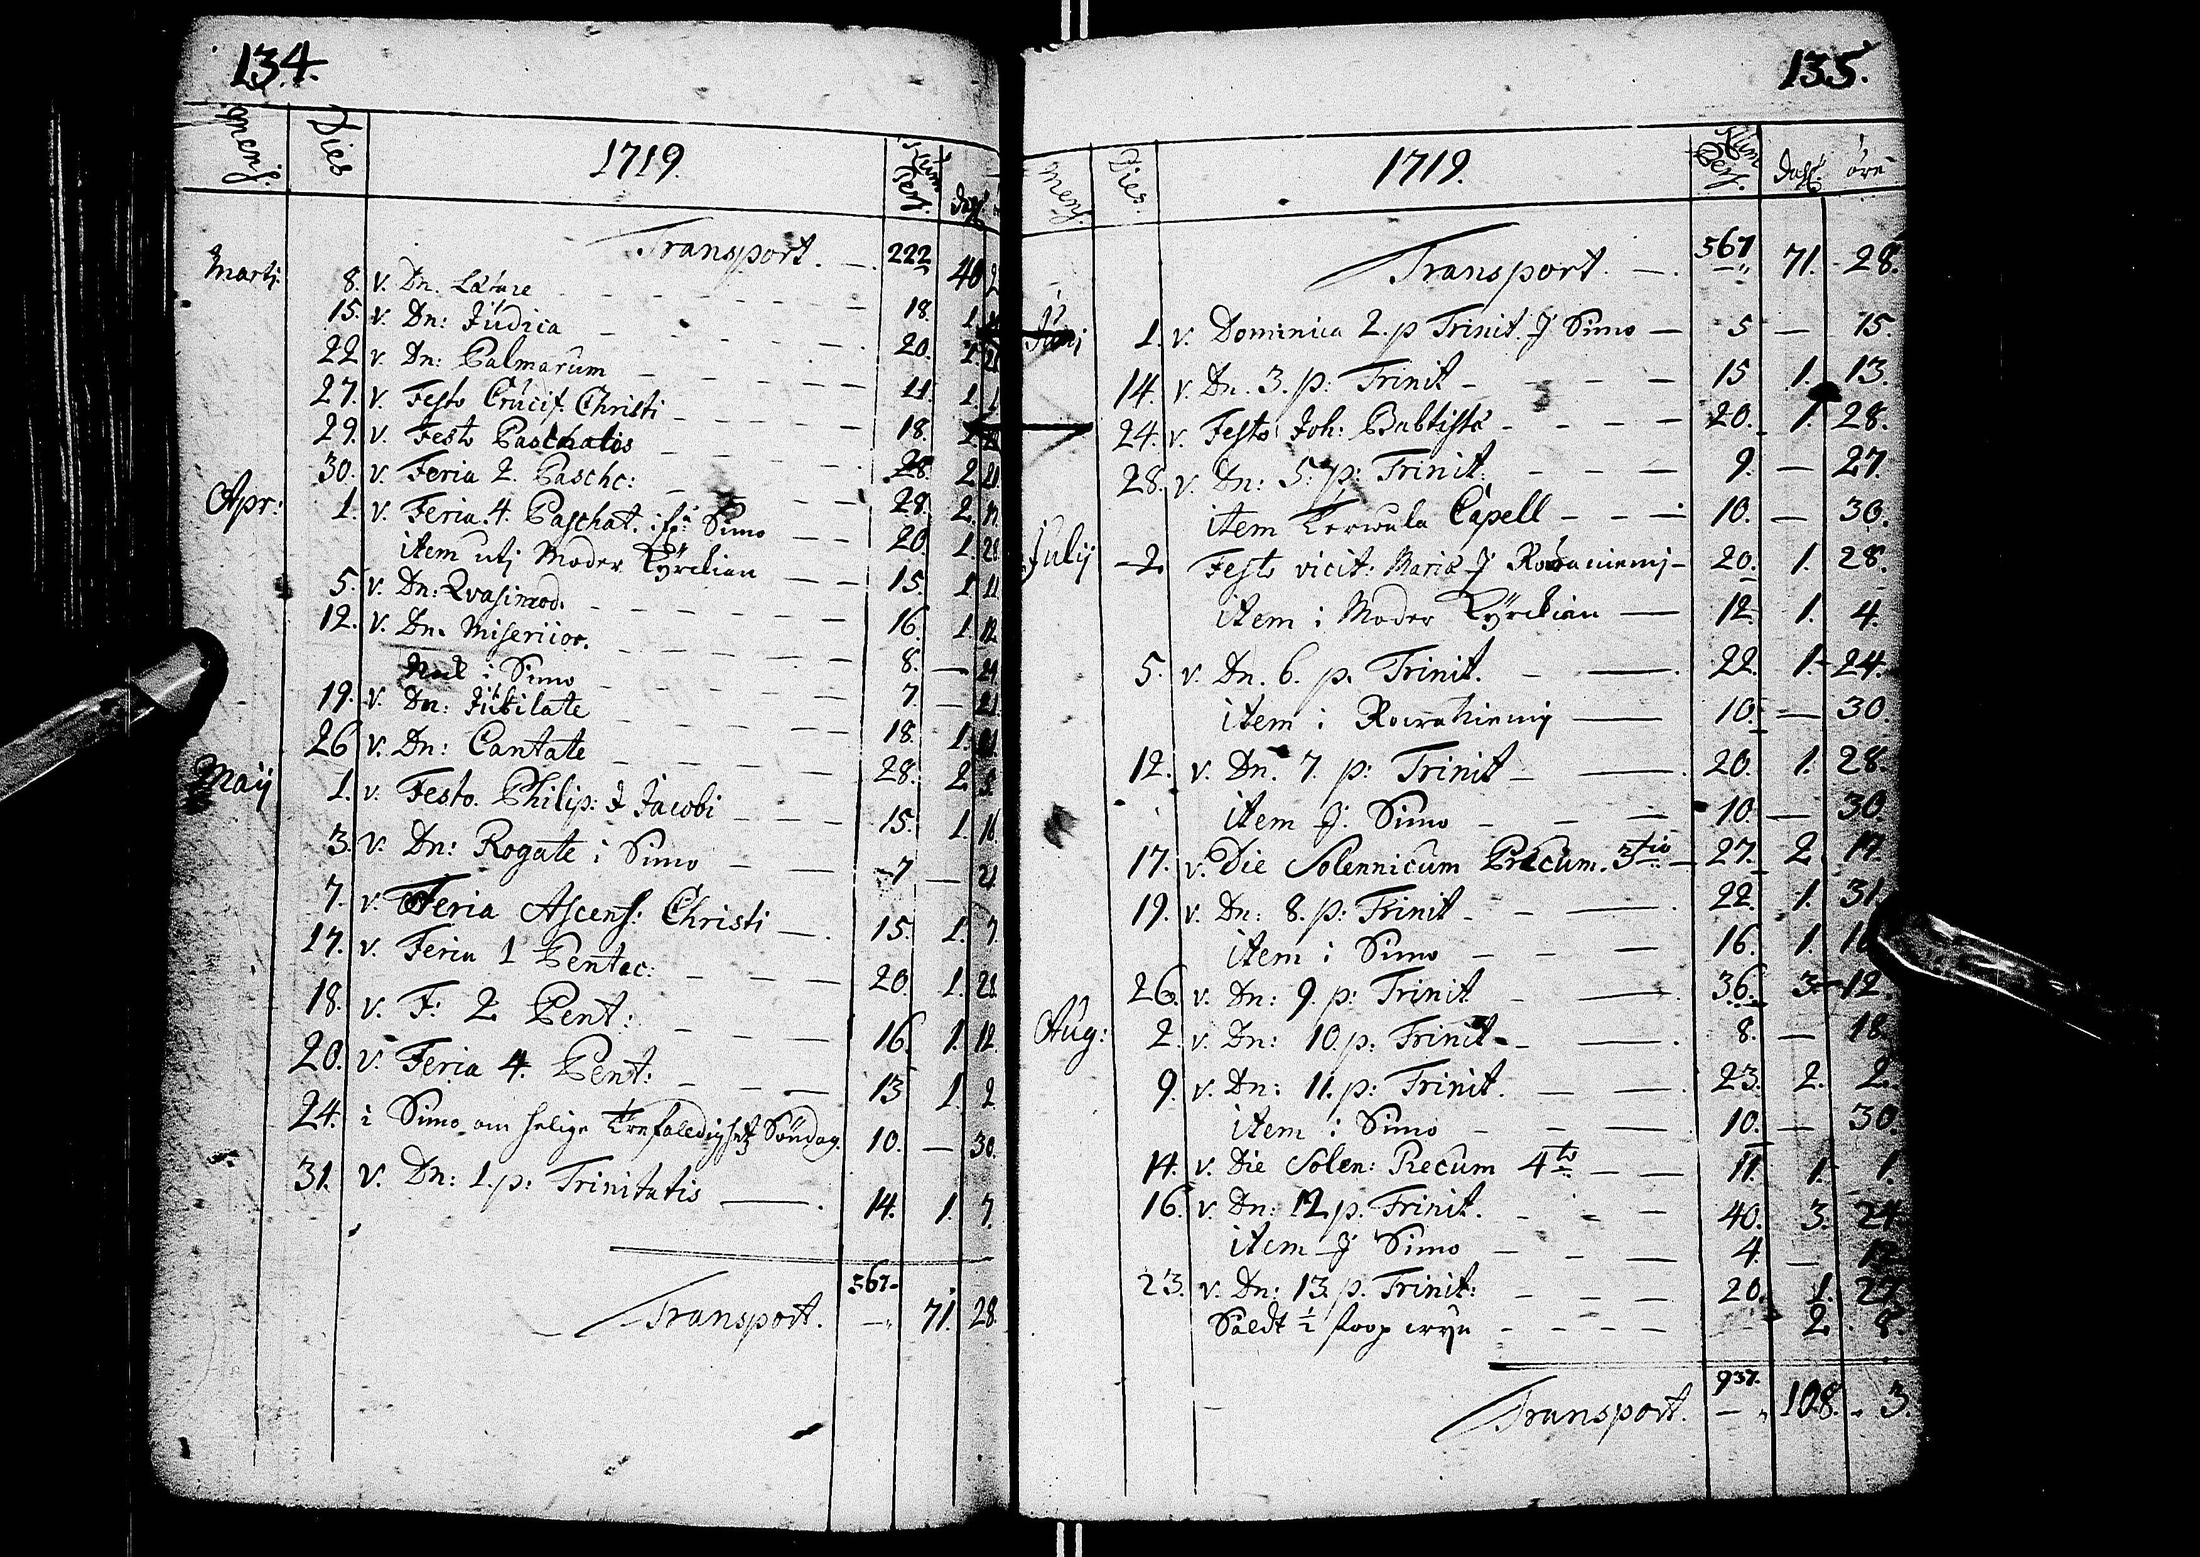 134.
Mens. Dies 1719. Num Pers. dalr
Transport. — 222 40 2
Martj: 8. v. Dn. Lætare - - - 18. 1.
15. v. Dn: Judica - - - 20. 1. 28
22 v. Dn: Palmarum - - - 11. 1. 1
27. v. Festo Crucif. Christi - - - 18. 1.
29. v. Festo Paschatos - - - 28. 2 20
30. v. Feria 2. Pasche: - - - 28. 2. 11
Apr: 1. v. Feria. 4. Paschat. i Simo - - 20. 1. 28
item utj Moder Kÿrckian - - 15. 1 11
5. v. Dn: Qvasimod. - - - 16. 1. 12.
12. v. Dn. Misericor. - - - 8. — 24
i Simo - - - 7. — 21.
19. v. Dn: Jubilate - - - 18. 1. 21.
26 v. Dn: Cantate - - - 28. 2. 3.
Maij 1. v. Festo. Philip: & Jacobi - - - 15. 1. 16.
3. v. Dn: Rogate i Simo - - 7 — 21.
7. v. Feria Ascens: Christi — 15. 1. 7.
17. v. Feria 1 Pentec: - - - 20. 1. 28.
18. v. F: 2 Pent: - - - 16. 1. 12.
20. v. Feria 4. Pent: - - - 13 1. 2.
24. i Simo om helige Trefaldighetz Söndag. 10. — 30.
31. v. Dn: 1. p: Trinitatis — 14. 1. 7.
Transport. 567. 71. 28.
135.
Mens. Dies. 1719. Num Pers. dalr: öre
Transport. — 567 71. 28.
Junj 1. v. Dominica 2. p Trinit. J Simo — 5 — 15.
14. v. Dn. 3. p: Trinit - - - 15 1. 13.
24. v. Festo Joh: Babtistæ - - - 20. 1. 28.
28. v. Dn: 5. p: Trinit: - - - 9. — 27.
item Kerwula Capell - - - 10. — 30.
Julij 2. Festo vicit: Mariæ J Rowaniemj - 20. 1. 28.
item i Moder Kÿrckian — 12. 1. 4.
5. v. Dn. 6. p. Trinit. - — 22. 1. 24.
item i Rowaniemj — 10. — 30.
12. v. Dn. 7. p: Trinit - — 20. 1. 28.
item J. Simo - - - 10. — 30.
17. v. Die Solennicum Precum. 3tio — 27. 2. 17.
19. v. Dn: 8. p: Trinit - - — 22. 1. 31.
item i Simo - - - 16. 1.
26. v. Dn: 9. p: Trinit - — 36. 3 12.
Aug: 2. v. Dn: 10. p: Trinit - — 8. — 18.
9. v. Dn: 11. p: Trinit. — — 23. 2. 2.
item i Simo - - - 10. — 30.
14. v. Die Solen: Precum 4to - - 11. 1. 1.
16. v. Dn: 12 p. Trinit. - - - 40. 3. 24.
item J Simo - - - 4. — 12.
23. v. Dn: 13. p. Trinit: - - - 20. 1. 27
Såldt ½ stoop - - - - 2. 8.
Transport. 937. 108. 3.